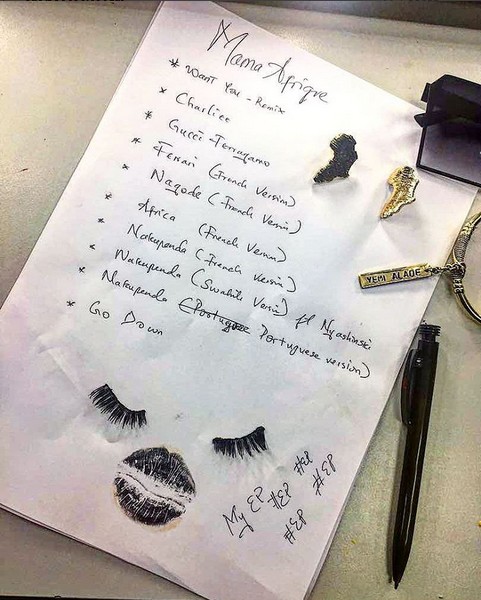 Mama Afrique
* Want You - Remix
* Charliee
* Gucci Ferragamo
* Ferrari (French Version)
* Nagode (French Version)
* Africa (French Version)
* Nakupenda (French Version)
* Nakupenda (Swahili Versin) ft Nyashinski
* Nakupenda (Portugese Portuguese version)
* Go Down
YEMI ALADE
My EP
#EP
#EP
#EP
#EP